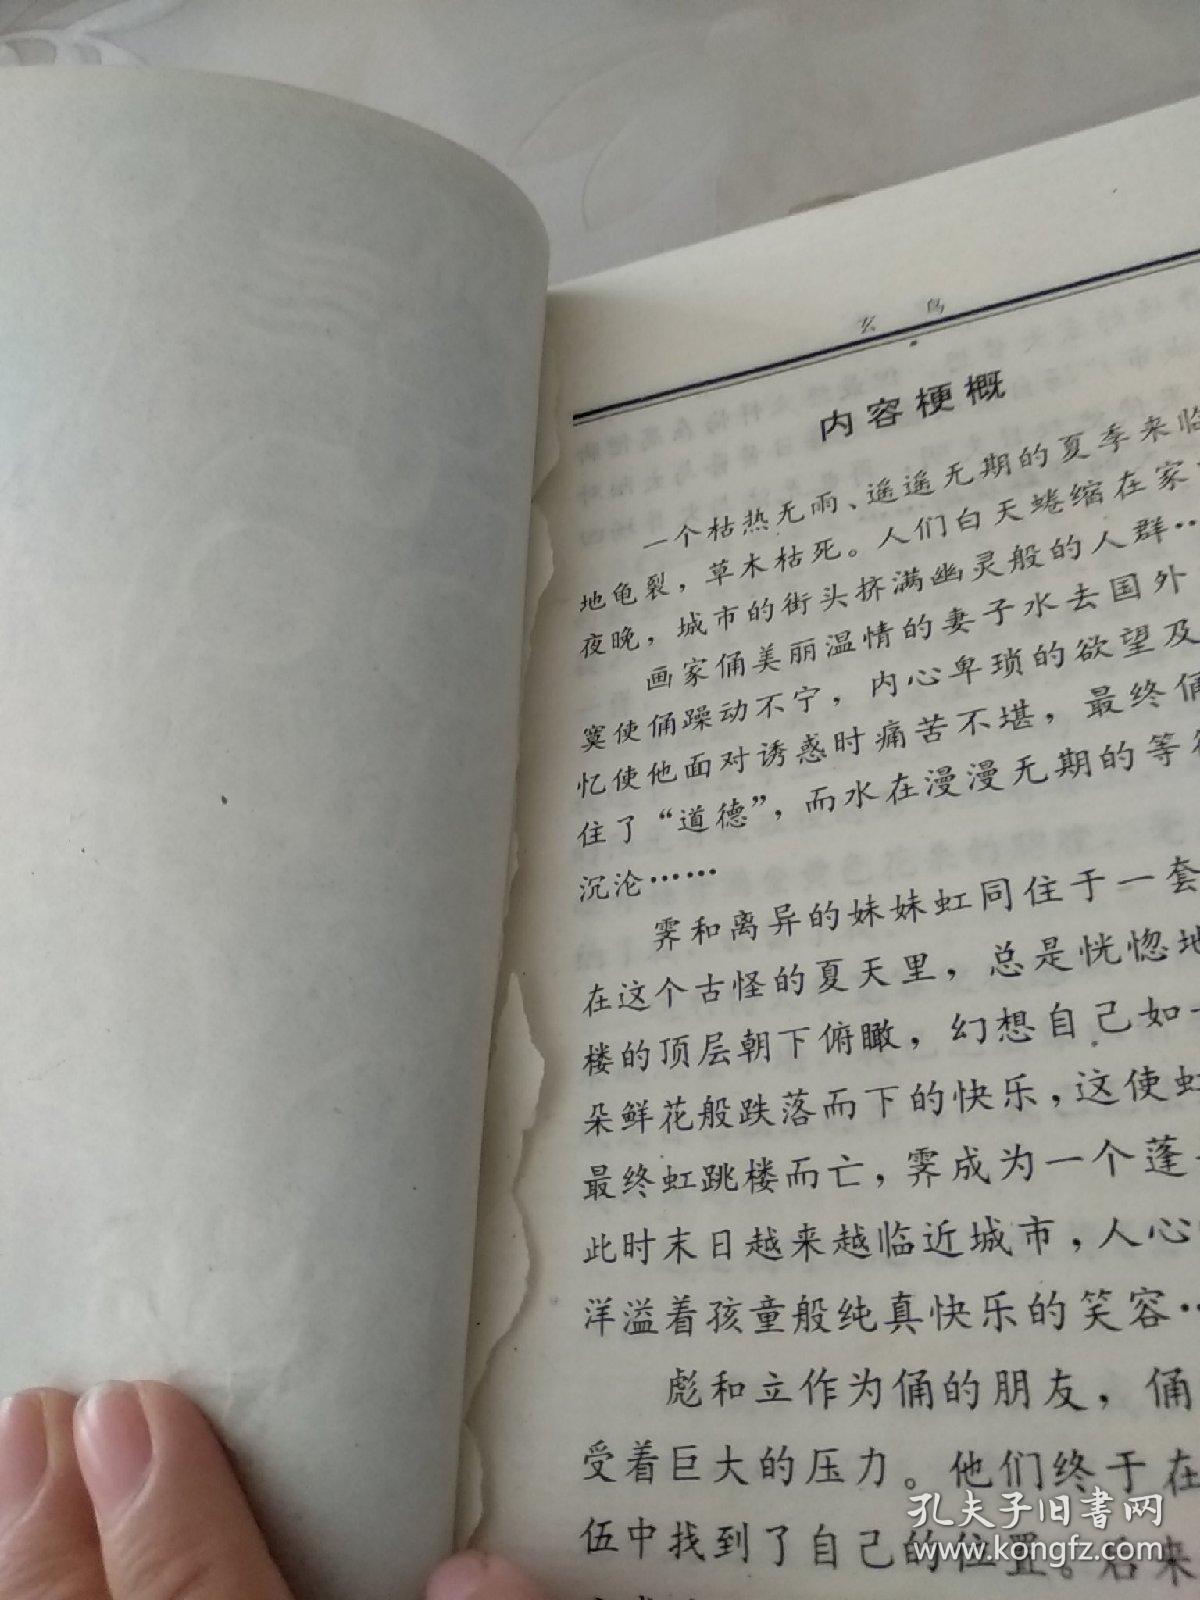 玄鸟
内容梗概
一个枯热无雨、遥遥无期的夏季来临
地龟裂，草木枯死。人们白天蜷缩在家
夜晚，城市的街头挤满幽灵般的人群…
画家俑美丽温情的妻子水去国外
寞使俑躁动不宁，内心卑琐的欲望及
忆使他面对诱惑时痛苦不堪，最终俑
住了“道德”，而水在漫漫无期的等
沉沦……
霁和离异的妹妹虹同住于一套
在这个古怪的夏天里，总是恍惚地
楼的顶层朝下俯瞰，幻想自己如一
朵鲜花般跌落而下的快乐，这使虹
最终虹跳楼而亡，霁成为一个蓬
此时末日越来越临近城市，人心
洋溢着孩童般纯真快乐的笑容…
彪和立作为俑的朋友，俑
受着巨大的压力。他们终于在
伍中找到了自己的位置。后来
孔夫子旧书网
www.kongfz.com